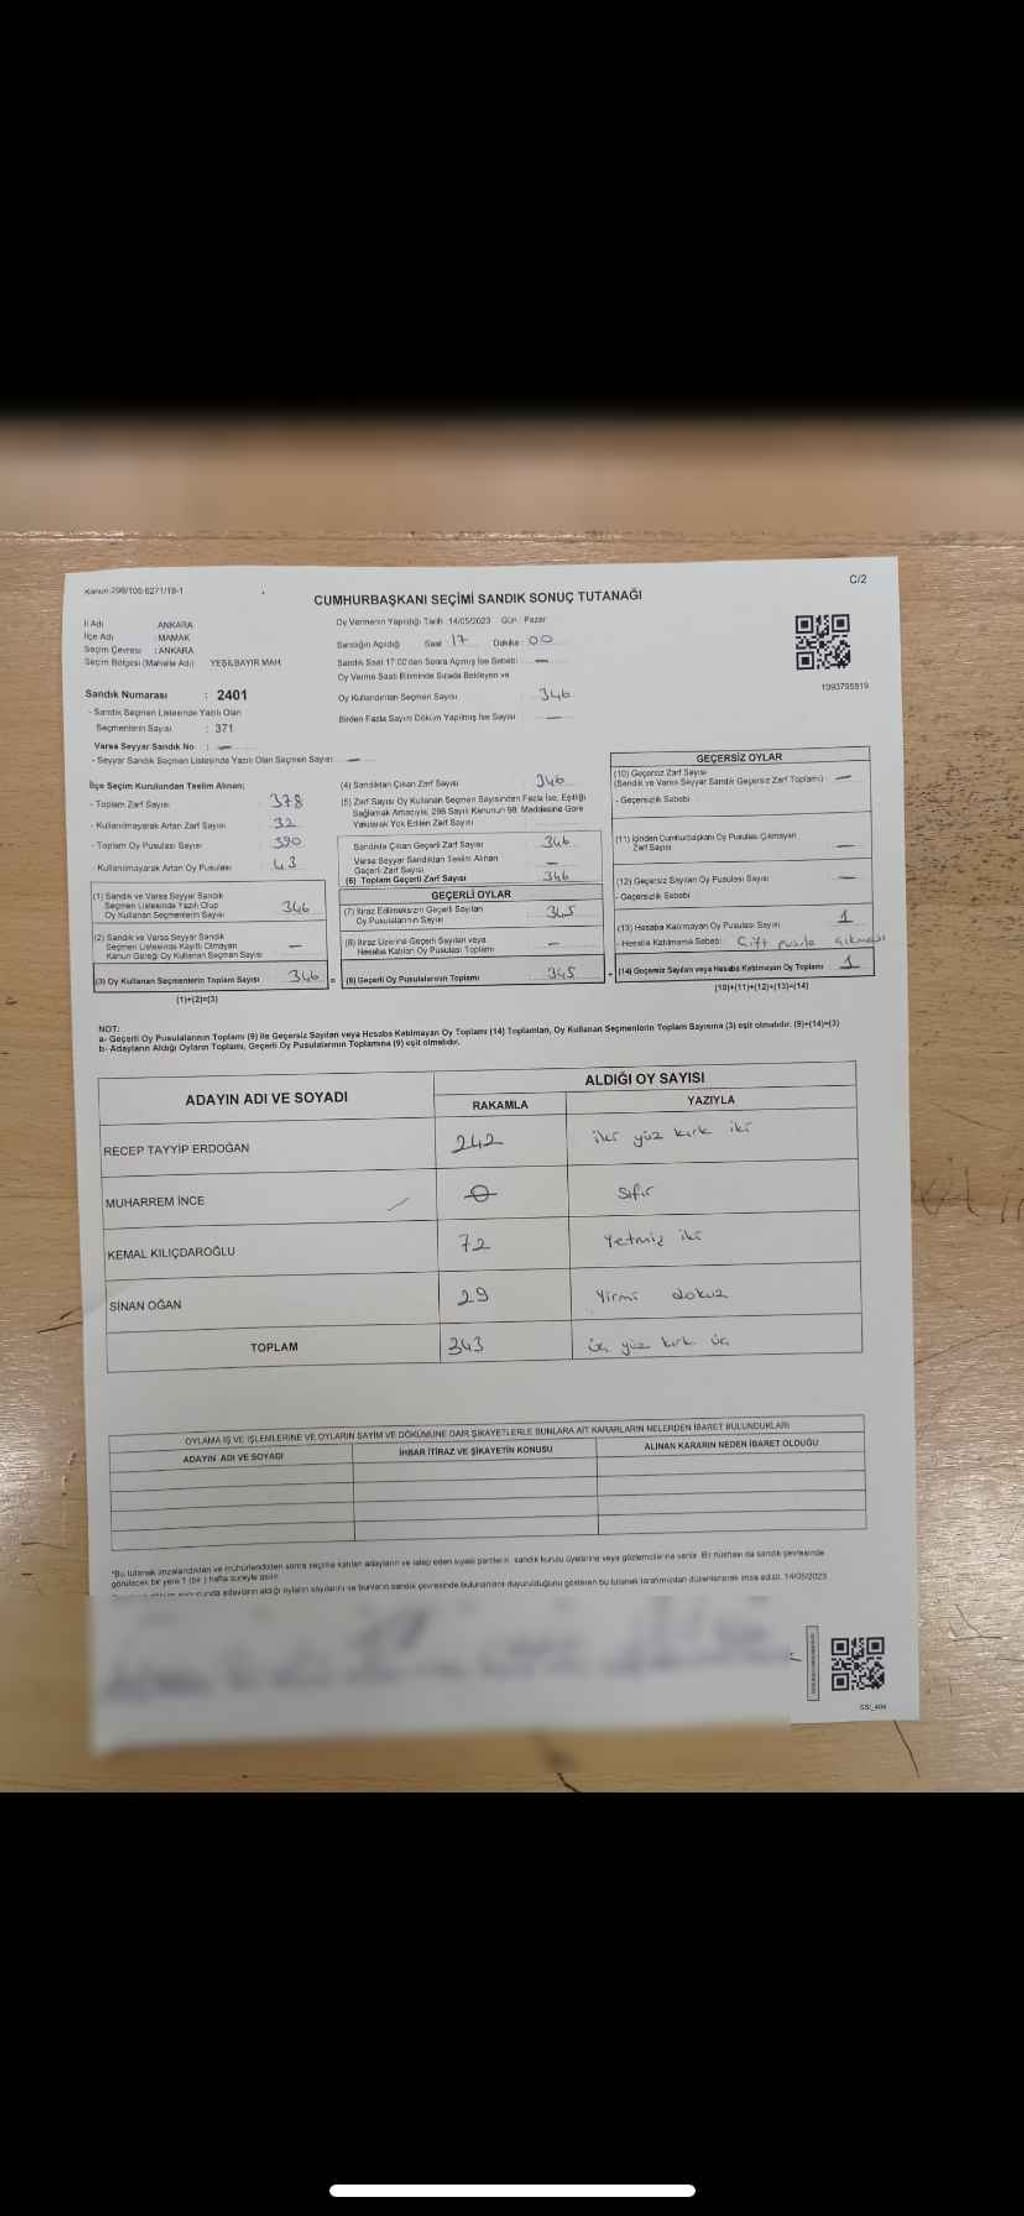 Kanun 298/105-6271/19-1
C/2
CUMHURBAŞKANI SEÇİMİ SANDIK SONUÇ TUTANAĞI
İl Adı ANKARA
İlçe Adı : MAMAK
Seçim Çevresi : ANKARA
Seçim Bölgesi (Mahalle Adı) YEŞİLBAYIR MAH.
Sandık Numarası : 2401
- Sandık Seçmen Listesinde Yazılı Olan
Seçmenlerin Sayısı : 371
Varsa Seyyar Sandık No : —
- Seyyar Sandık Seçmen Listesinde Yazılı Olan Seçmen Sayısı —
Oy Vermenin Yapıldığı Tarih 14/05/2023 Gün Pazar
Sandığın Açıldığı Saat 17 Dakika 00
Sandık Saat 17.00'den Sonra Açılmış İse Sebebi —
Oy Verme Saati Bitiminde Sırada Bekleyen ve
Oy Kullandırılan Seçmen Sayısı 346
Birden Fazla Sayım Döküm Yapılmış İse Sayısı —
1093795819
İlçe Seçim Kurulundan Teslim Alınan;
- Toplam Zarf Sayısı 378
- Kullanılmayarak Artan Zarf Sayısı 32
- Toplam Oy Pusulası Sayısı 390
- Kullanılmayarak Artan Oy Pusulası 43
(1) Sandık ve Varsa Seyyar Sandık
Seçmen Listesinde Yazılı Olup
Oy Kullanan Seçmenlerin Sayısı 346
(2) Sandık ve Varsa Seyyar Sandık
Seçmen Listesinde Kayıtlı Olmayan
Kanun Gereği Oy Kullanan Seçmen Sayısı —
(3) Oy Kullanan Seçmenlerin Toplam Sayısı 346 =
(1)+(2)=(3)
(4) Sandıktan Çıkan Zarf Sayısı 346
(5) Zarf Sayısı Oy Kullanan Seçmen Sayısından Fazla İse, Eşitliği
Sağlamak Amacıyla, 298 Sayılı Kanunun 98. Maddesine Göre
Yakılarak Yok Edilen Zarf Sayısı
Sandıkta Çıkan Geçerli Zarf Sayısı 346
Varsa Seyyar Sandıktan Teslim Alınan
Geçerli Zarf Sayısı —
(6) Toplam Geçerli Zarf Sayısı 346
GEÇERLİ OYLAR
(7) İtiraz Edilmeksizin Geçerli Sayılan
Oy Pusulalarının Sayısı 345
(8) İtiraz Üzerine Geçerli Sayılan veya
Hesaba Katılan Oy Pusulası Toplamı —
(9) Geçerli Oy Pusulalarının Toplamı 345 +
GEÇERSİZ OYLAR
(10) Geçersiz Zarf Sayısı
(Sandık ve Varsa Seyyar Sandık Geçersiz Zarf Toplamı) —
- Geçersizlik Sebebi
(11) İçinden Cumhurbaşkanı Oy Pusulası Çıkmayan
Zarf Sayısı —
(12) Geçersiz Sayılan Oy Pusulası Sayısı —
- Geçersizlik Sebebi
(13) Hesaba Katılmayan Oy Pusulası Sayısı 1
- Hesaba Katılmama Sebebi Çift pusula çıkması
(14) Geçersiz Sayılan veya Hesaba Katılmayan Oy Toplamı 1
(10)+(11)+(12)+(13)=(14)
NOT:
a- Geçerli Oy Pusulalarının Toplamı (9) ile Geçersiz Sayılan veya Hesaba Katılmayan Oy Toplamı (14) Toplamları, Oy Kullanan Seçmenlerin Toplam Sayısına (3) eşit olmalıdır. (9)+(14)=(3)
b- Adayların Aldığı Oyların Toplamı, Geçerli Oy Pusulalarının Toplamına (9) eşit olmalıdır.
ADAYIN ADI VE SOYADI ALDIĞI OY SAYISI
RAKAMLA YAZIYLA
RECEP TAYYİP ERDOĞAN 242 iki yüz kırk iki
MUHARREM İNCE 0 sıfır
KEMAL KILIÇDAROĞLU 72 Yetmiş iki
SİNAN OĞAN 29 Yirmi dokuz
TOPLAM 343 üç yüz kırk üç
OYLAMA İŞ VE İŞLEMLERİNE VE OYLARIN SAYIM VE DÖKÜMÜNE DAİR ŞİKAYETLERLE BUNLARA AİT KARARLARIN NELERDEN İBARET BULUNDUKLARI
ADAYIN ADI VE SOYADI İHBAR İTİRAZ VE ŞİKAYETİN KONUSU ALINAN KARARIN NEDEN İBARET OLDUĞU
*Bu tutanak imzalandıktan ve mühürlendikten sonra seçime katılan adayların ve talep eden siyasi partilerin sandık kurulu üyelerine veya gözlemcilerine verilir. Bir nüshası da sandık çevresinde
görülecek bir yere 1 (bir) hafta süreyle asılır.
adayların aldığı oyların sayılarını ve bunların sandık çevresinde bulunanlara duyurulduğunu gösteren bu tutanak tarafımızdan düzenlenerek imza edildi. 14/05/2023